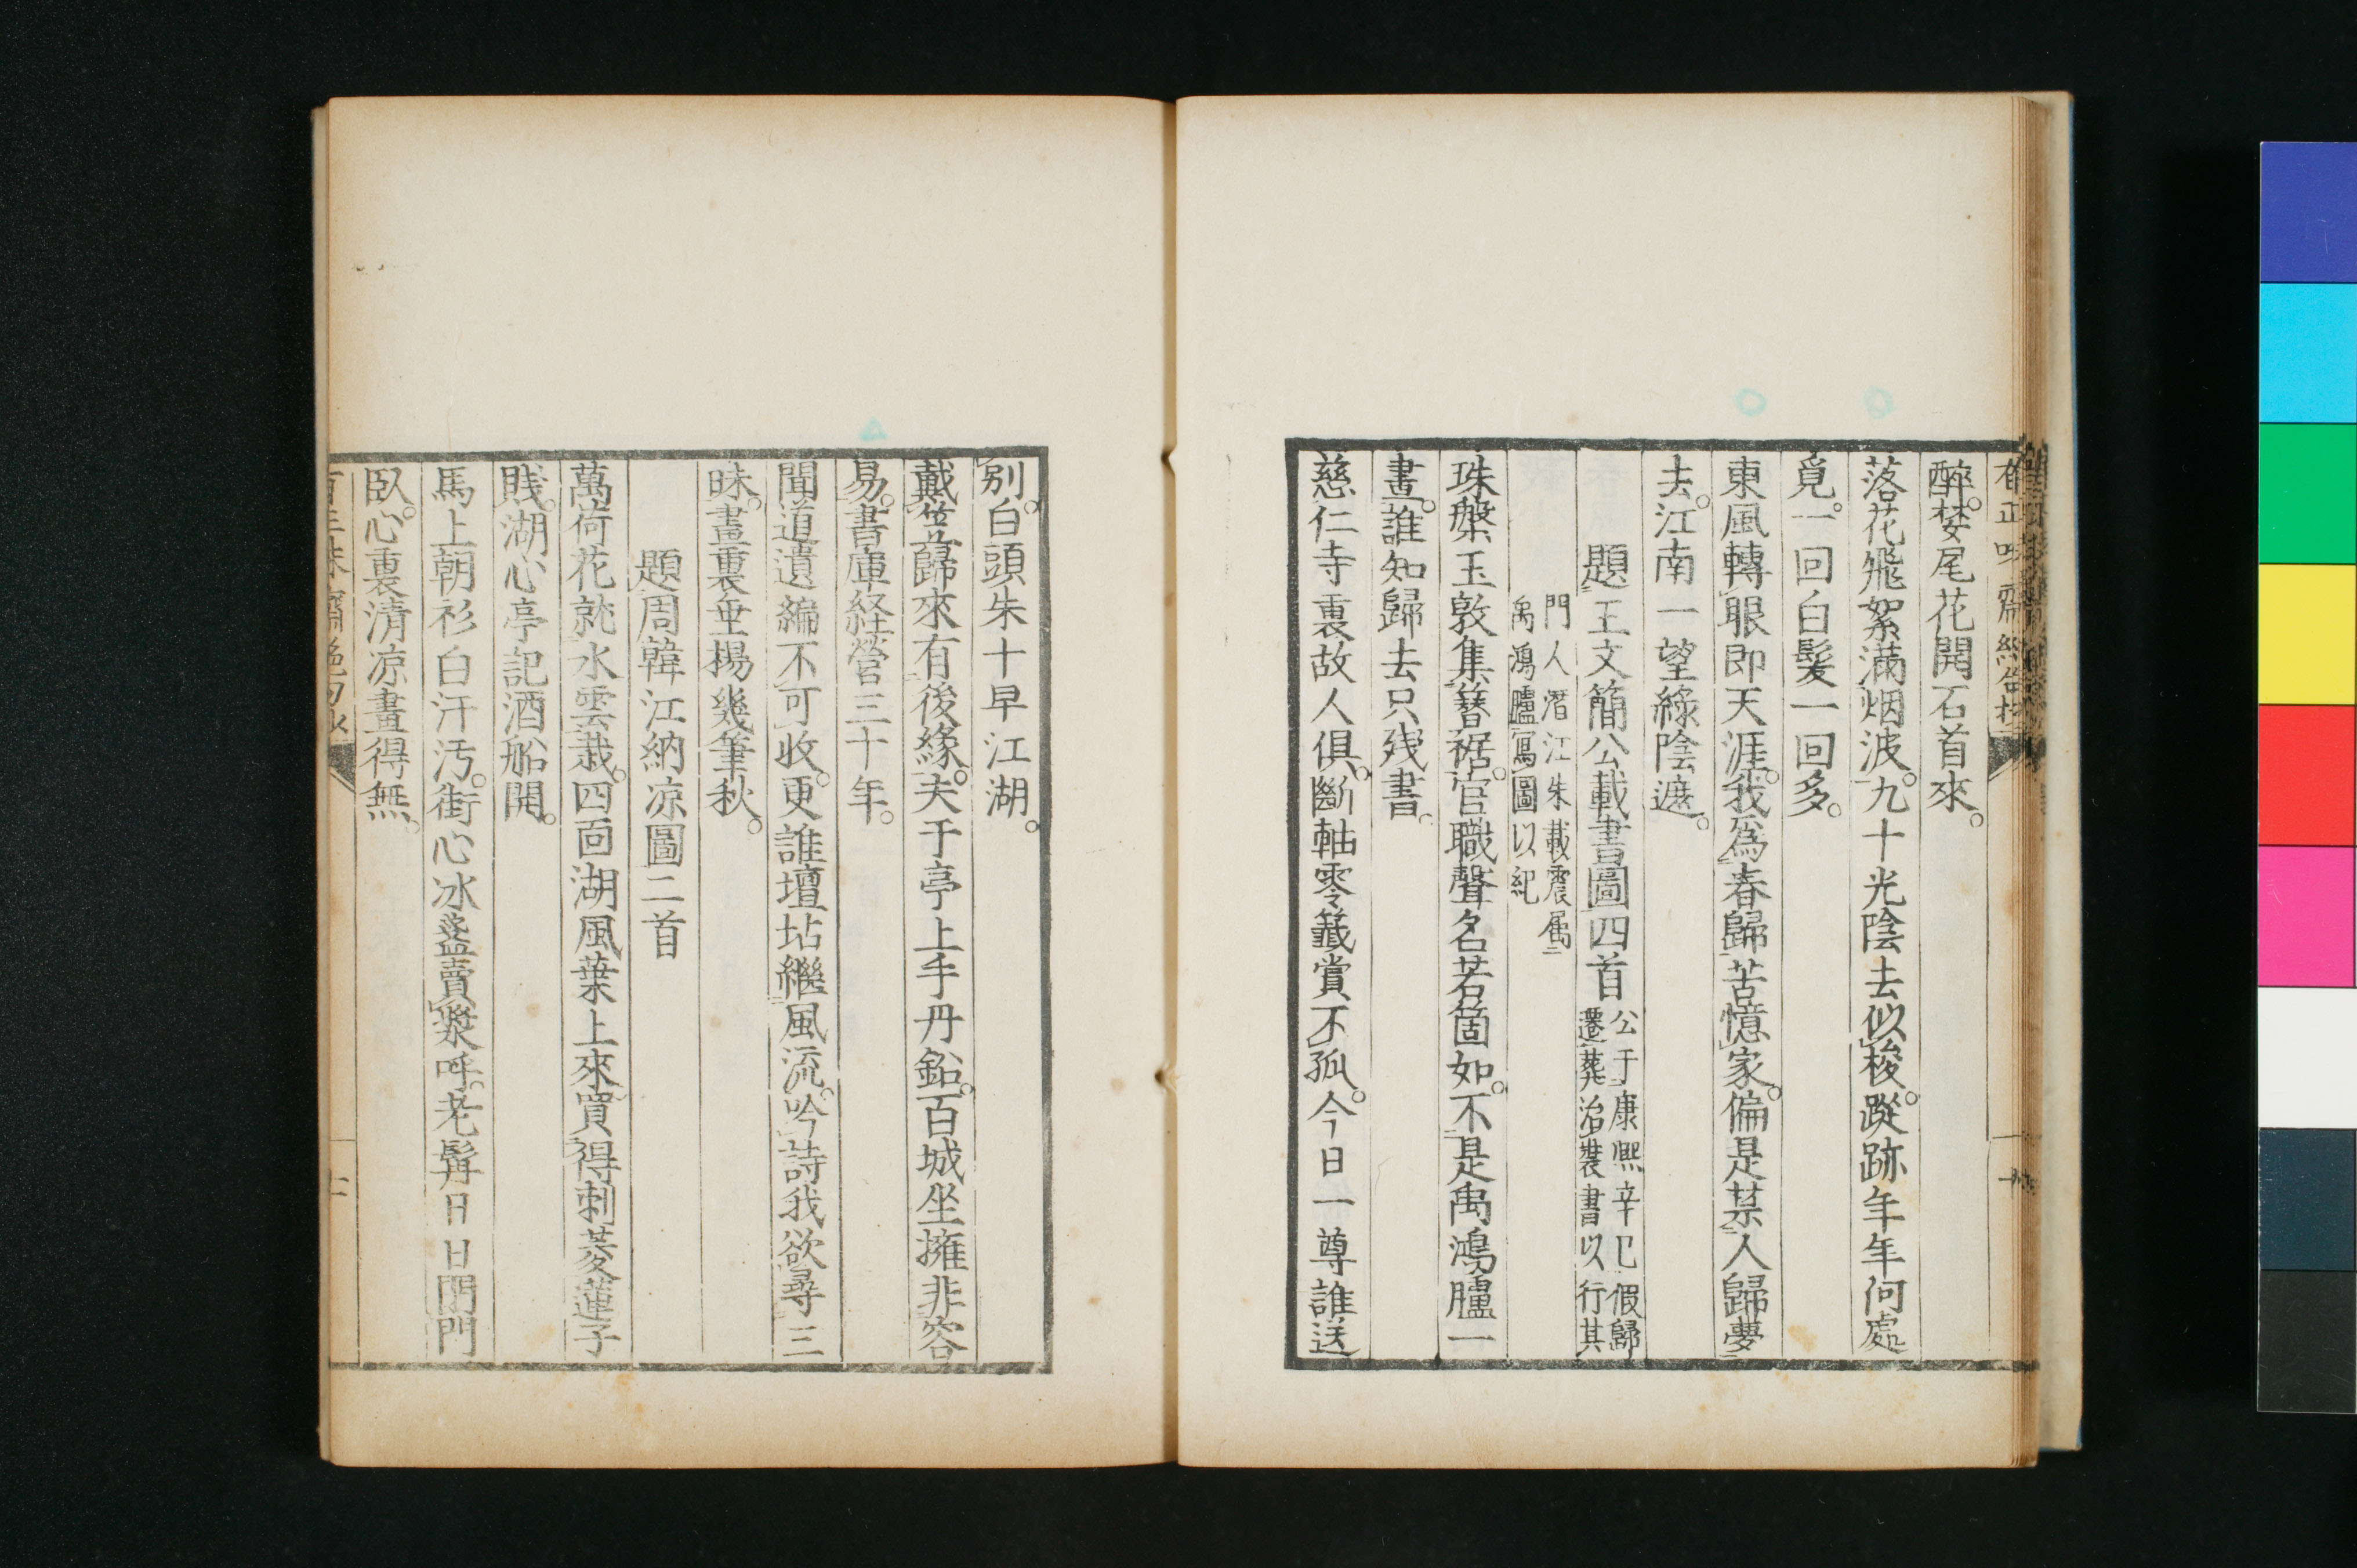 醉。婪尾花開石首來。
落花飛絮滿烟波。九十光陰去似梭。蹤跡年年何處
覓。一回白髮一回多。
東風轉眼即天涯。我爲春歸苦憶家。偏是禁人歸夢
去。江南一望綠陰遮。
題王文簡公載書圖四首
公于康熙辛巳假歸
遷葬治裝書以行其
門人潛江朱載震属
禹鴻臚寫圖以紀
珠槃玉敦集簪裾。官職聲名若箇如。不是禹鴻臚一
畫。誰知歸去只殘書。
慈仁寺裏故人俱。斷軸零籖賞不孤。今日一尊誰送
別。白頭朱十早江湖。
戴笠歸來有後緣。夫于亭上手丹鉛。百城坐擁非容
易。書庫経營三十年。
聞道遺編不可收。更誰壇坫繼風流。吟詩我欲尋三
昧。畫裏垂楊幾筆秋。
題周韓江納凉圖二首
萬荷花就水雲栽。四面湖風葉上來。買得刺菱蓮子
賤。湖心亭記酒船開。
馬上朝衫白汗污。街心冰盞賣漿呼。老髯日日閉門
臥。心裏清凉畫得無。